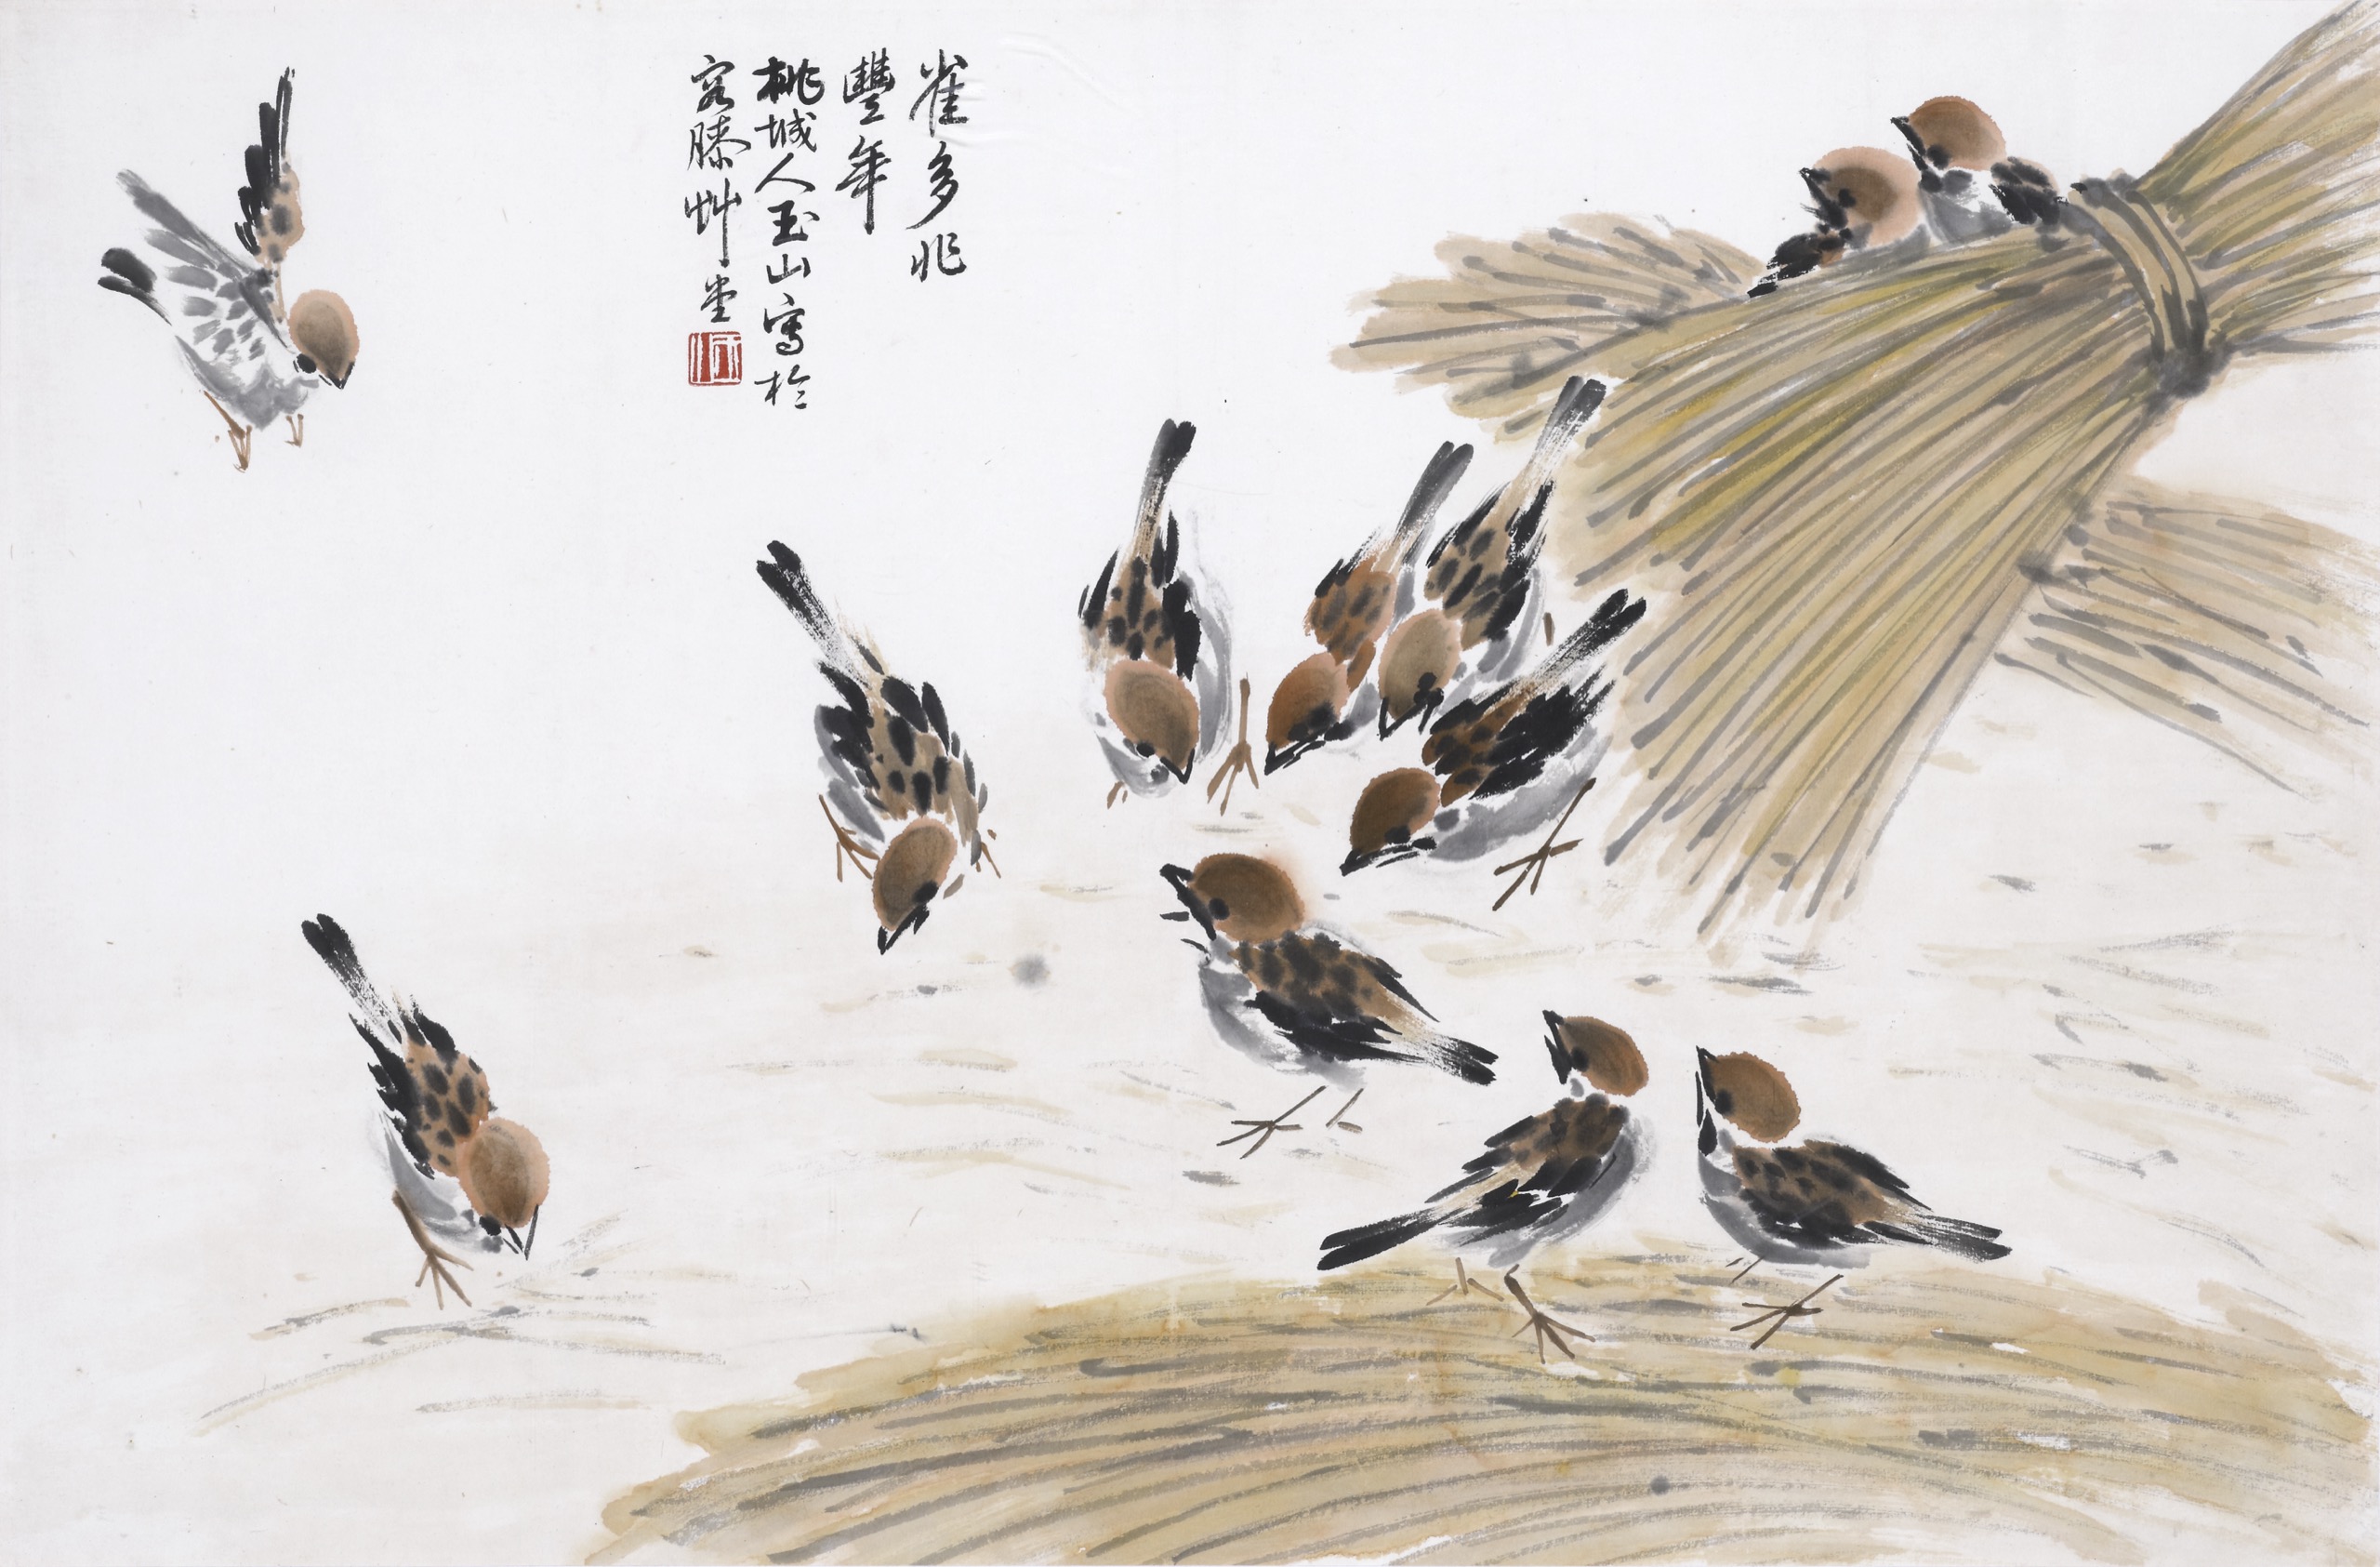 雀多兆
豐年
桃城人玉山寫於
容膝艸堂